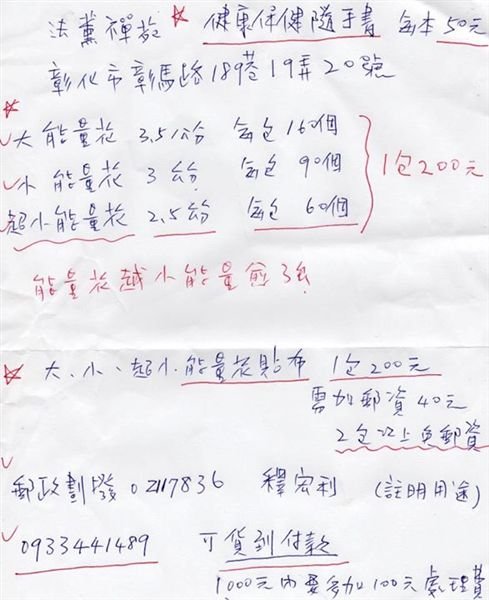 法薰禪苑 健康保健隨手書 每本50元
彰化市彰馬路189巷19弄20號
大能量花 3.5公分 每包160個
小能量花 3公分 每包90個
超小能量花 2.5公分 每包60個
1包200元
能量花越小能量愈強
大、小、超小能量花貼布 1包200元
需加郵資40元
2包以上免郵資
郵政劃撥 02117836 釋宏利 (註明用途)
0933441489 可貨到付款
1000元內要多加100元處理費